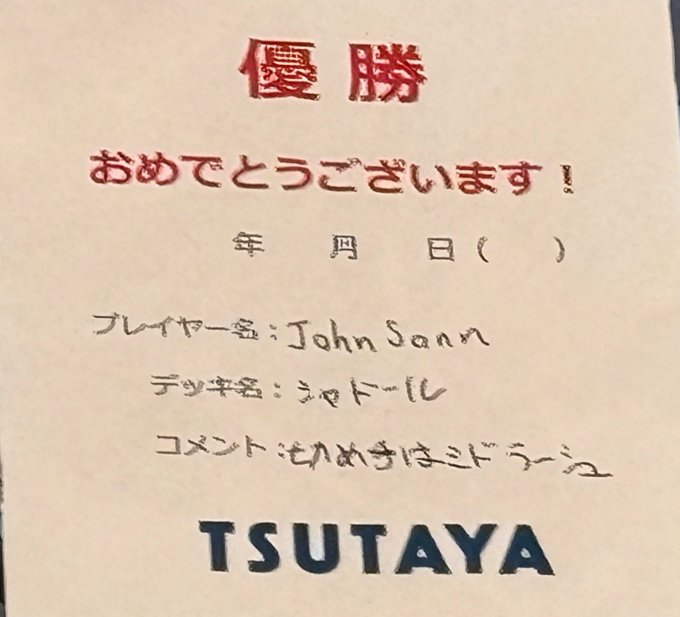 優勝
おめでとうございます!
年 月 日( )
プレイヤー名:John Sann
デッキ名:シャドール
コメント:切めきはミドラーシュ
TSUTAYA